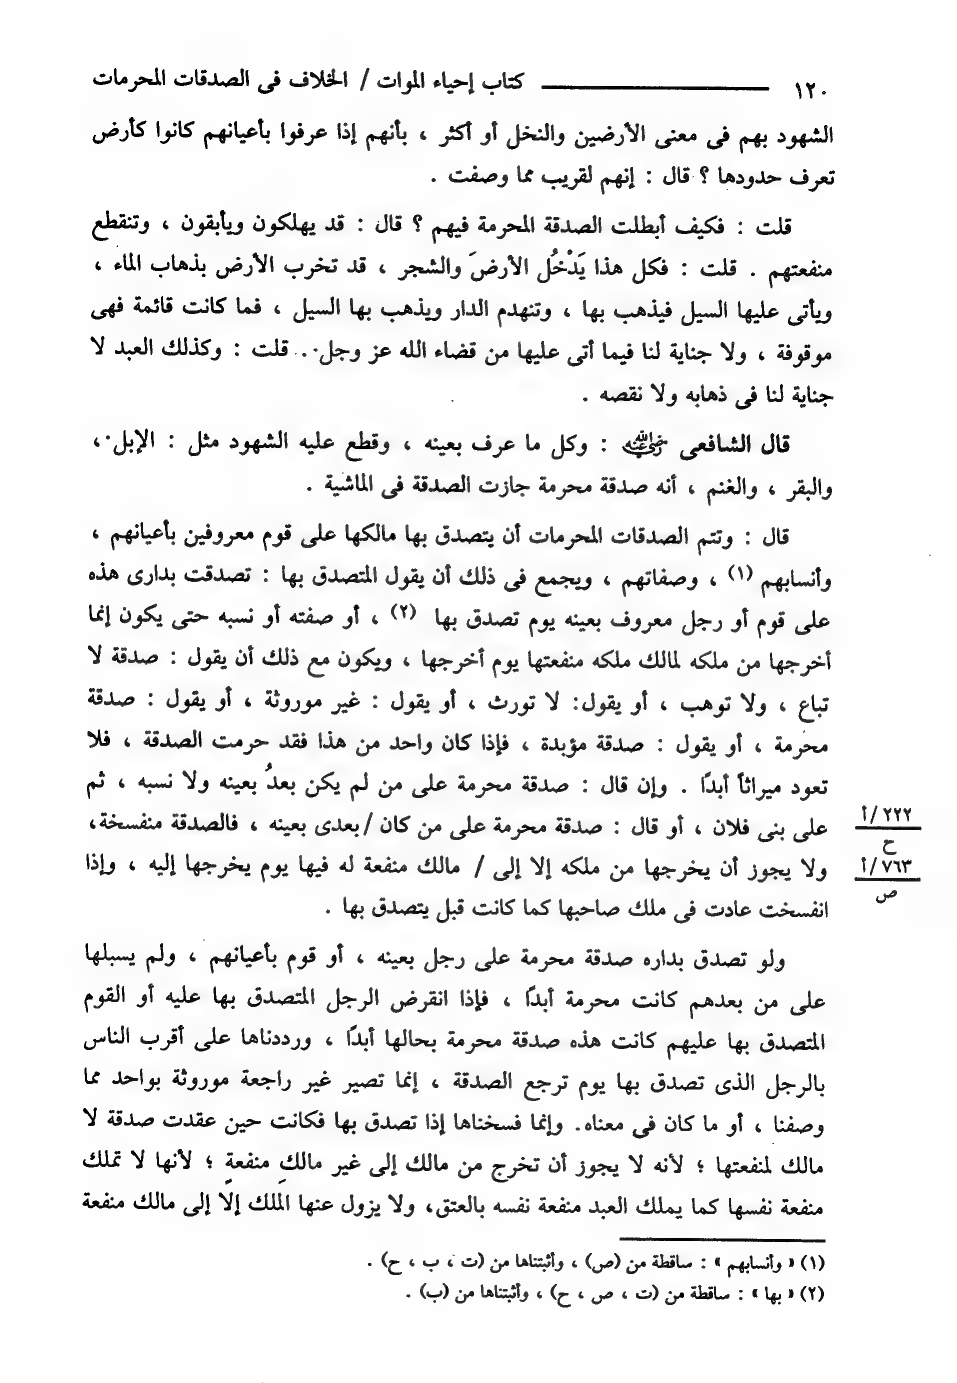 ١٢٠ كتاب إحياء الموات / الخلاف فى الصدقات المحرمات
الشهود بهم فى معنى الأرضين والنخل أو أكثر ، بأنهم إذا عرفوا بأعيانهم كانوا كأرض
تعرف حدودها ؟ قال : إنهم لقريب مما وصفت .
قلت : فكيف أبطلت الصدقة المحرمة فيهم ؟ قال : قد يهلكون ويأبقون ، وتنقطع
منفعتهم . قلت : فكل هذا يَدْخُل الأرضَ والشجر ، قد تخرب الأرض بذهاب الماء ،
ويأتى عليها السيل فيذهب بها ، وتنهدم الدار ويذهب بها السيل ، فما كانت قائمة فهى
موقوفة ، ولا جناية لنا فيما أتى عليها من قضاء الله عز وجل . قلت : وكذلك العبد لا
جناية لنا فى ذهابه ولا نقصه .
قال الشافعى رضي الله عنه : وكل ما عرف بعينه ، وقطع عليه الشهود مثل : الإبل ،
والبقر ، والغنم ، أنه صدقة محرمة جازت الصدقة فى الماشية .
قال : وتتم الصدقات المحرمات أن يتصدق بها مالكها على قوم معروفين بأعيانهم ،
وأنسابهم (١) ، وصفاتهم ، ويجمع فى ذلك أن يقول المتصدق بها : تصدقت بدارى هذه
على قوم أو رجل معروف بعينه يوم تصدق بها (٢) ، أو صفته أو نسبه حتى يكون إنما
أخرجها من ملكه لمالك ملكه منفعتها يوم أخرجها ، ويكون مع ذلك أن يقول : صدقة لا
تباع ، ولا توهب ، أو يقول: لا تورث ، أو يقول : غير موروثة ، أو يقول : صدقة
محرمة ، أو يقول : صدقة مؤبدة ، فإذا كان واحد من هذا فقد حرمت الصدقة ، فلا
تعود ميراثاً أبدًا . وإن قال : صدقة محرمة على من لم يكن بعدُ بعينه ولا نسبه ، ثم
على بنى فلان ، أو قال : صدقة محرمة على من كان /بعدى بعينه ، فالصدقة منفسخة،
٢٢٢/ أ
ح
ولا يجوز أن يخرجها من ملكه إلا إلى / مالك منفعة له فيها يوم يخرجها إليه ، وإذا
٧٦٣/ أ
ص
انفسخت عادت فى ملك صاحبها كما كانت قبل يتصدق بها .
ولو تصدق بداره صدقة محرمة على رجل بعينه ، أو قوم بأعيانهم ، ولم يسبلها
على من بعدهم كانت محرمة أبدًا ، فإذا انقرض الرجل المتصدق بها عليه أو القوم
المتصدق بها عليهم كانت هذه صدقة محرمة بحالها أبدًا ، ورددناها على أقرب الناس
بالرجل الذى تصدق بها يوم ترجع الصدقة ، إنما تصير غير راجعة موروثة بواحد مما
وصفنا ، أو ما كان فى معناه. وإنما فسخناها إذا تصدق بها فكانت حين عقدت صدقة لا
مالك لمنفعتها ؛ لأنه لا يجوز أن تخرج من مالك إلى غير مالكِ منفعةٍ ؛ لأنها لا تملك
منفعة نفسها كما يملك العبد منفعة نفسه بالعتق، ولا يزول عنها الملك إلا إلى مالك منفعة
(١) « وأنسابهم » : ساقطة من (ص) ، وأثبتناها من (ت ، ب ، ح) .
(٢) « بها » : ساقطة من (ت ، ص ، ح) ، وأثبتناها من (ب) .